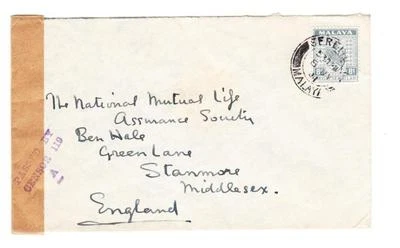 MALAYA
SEREMBAN
The National Mutual Life
Assurance Society
Ben Hale
Green Lane
Stanmore
Middlesex.
England
PASSED BY
CENSOR 119
A